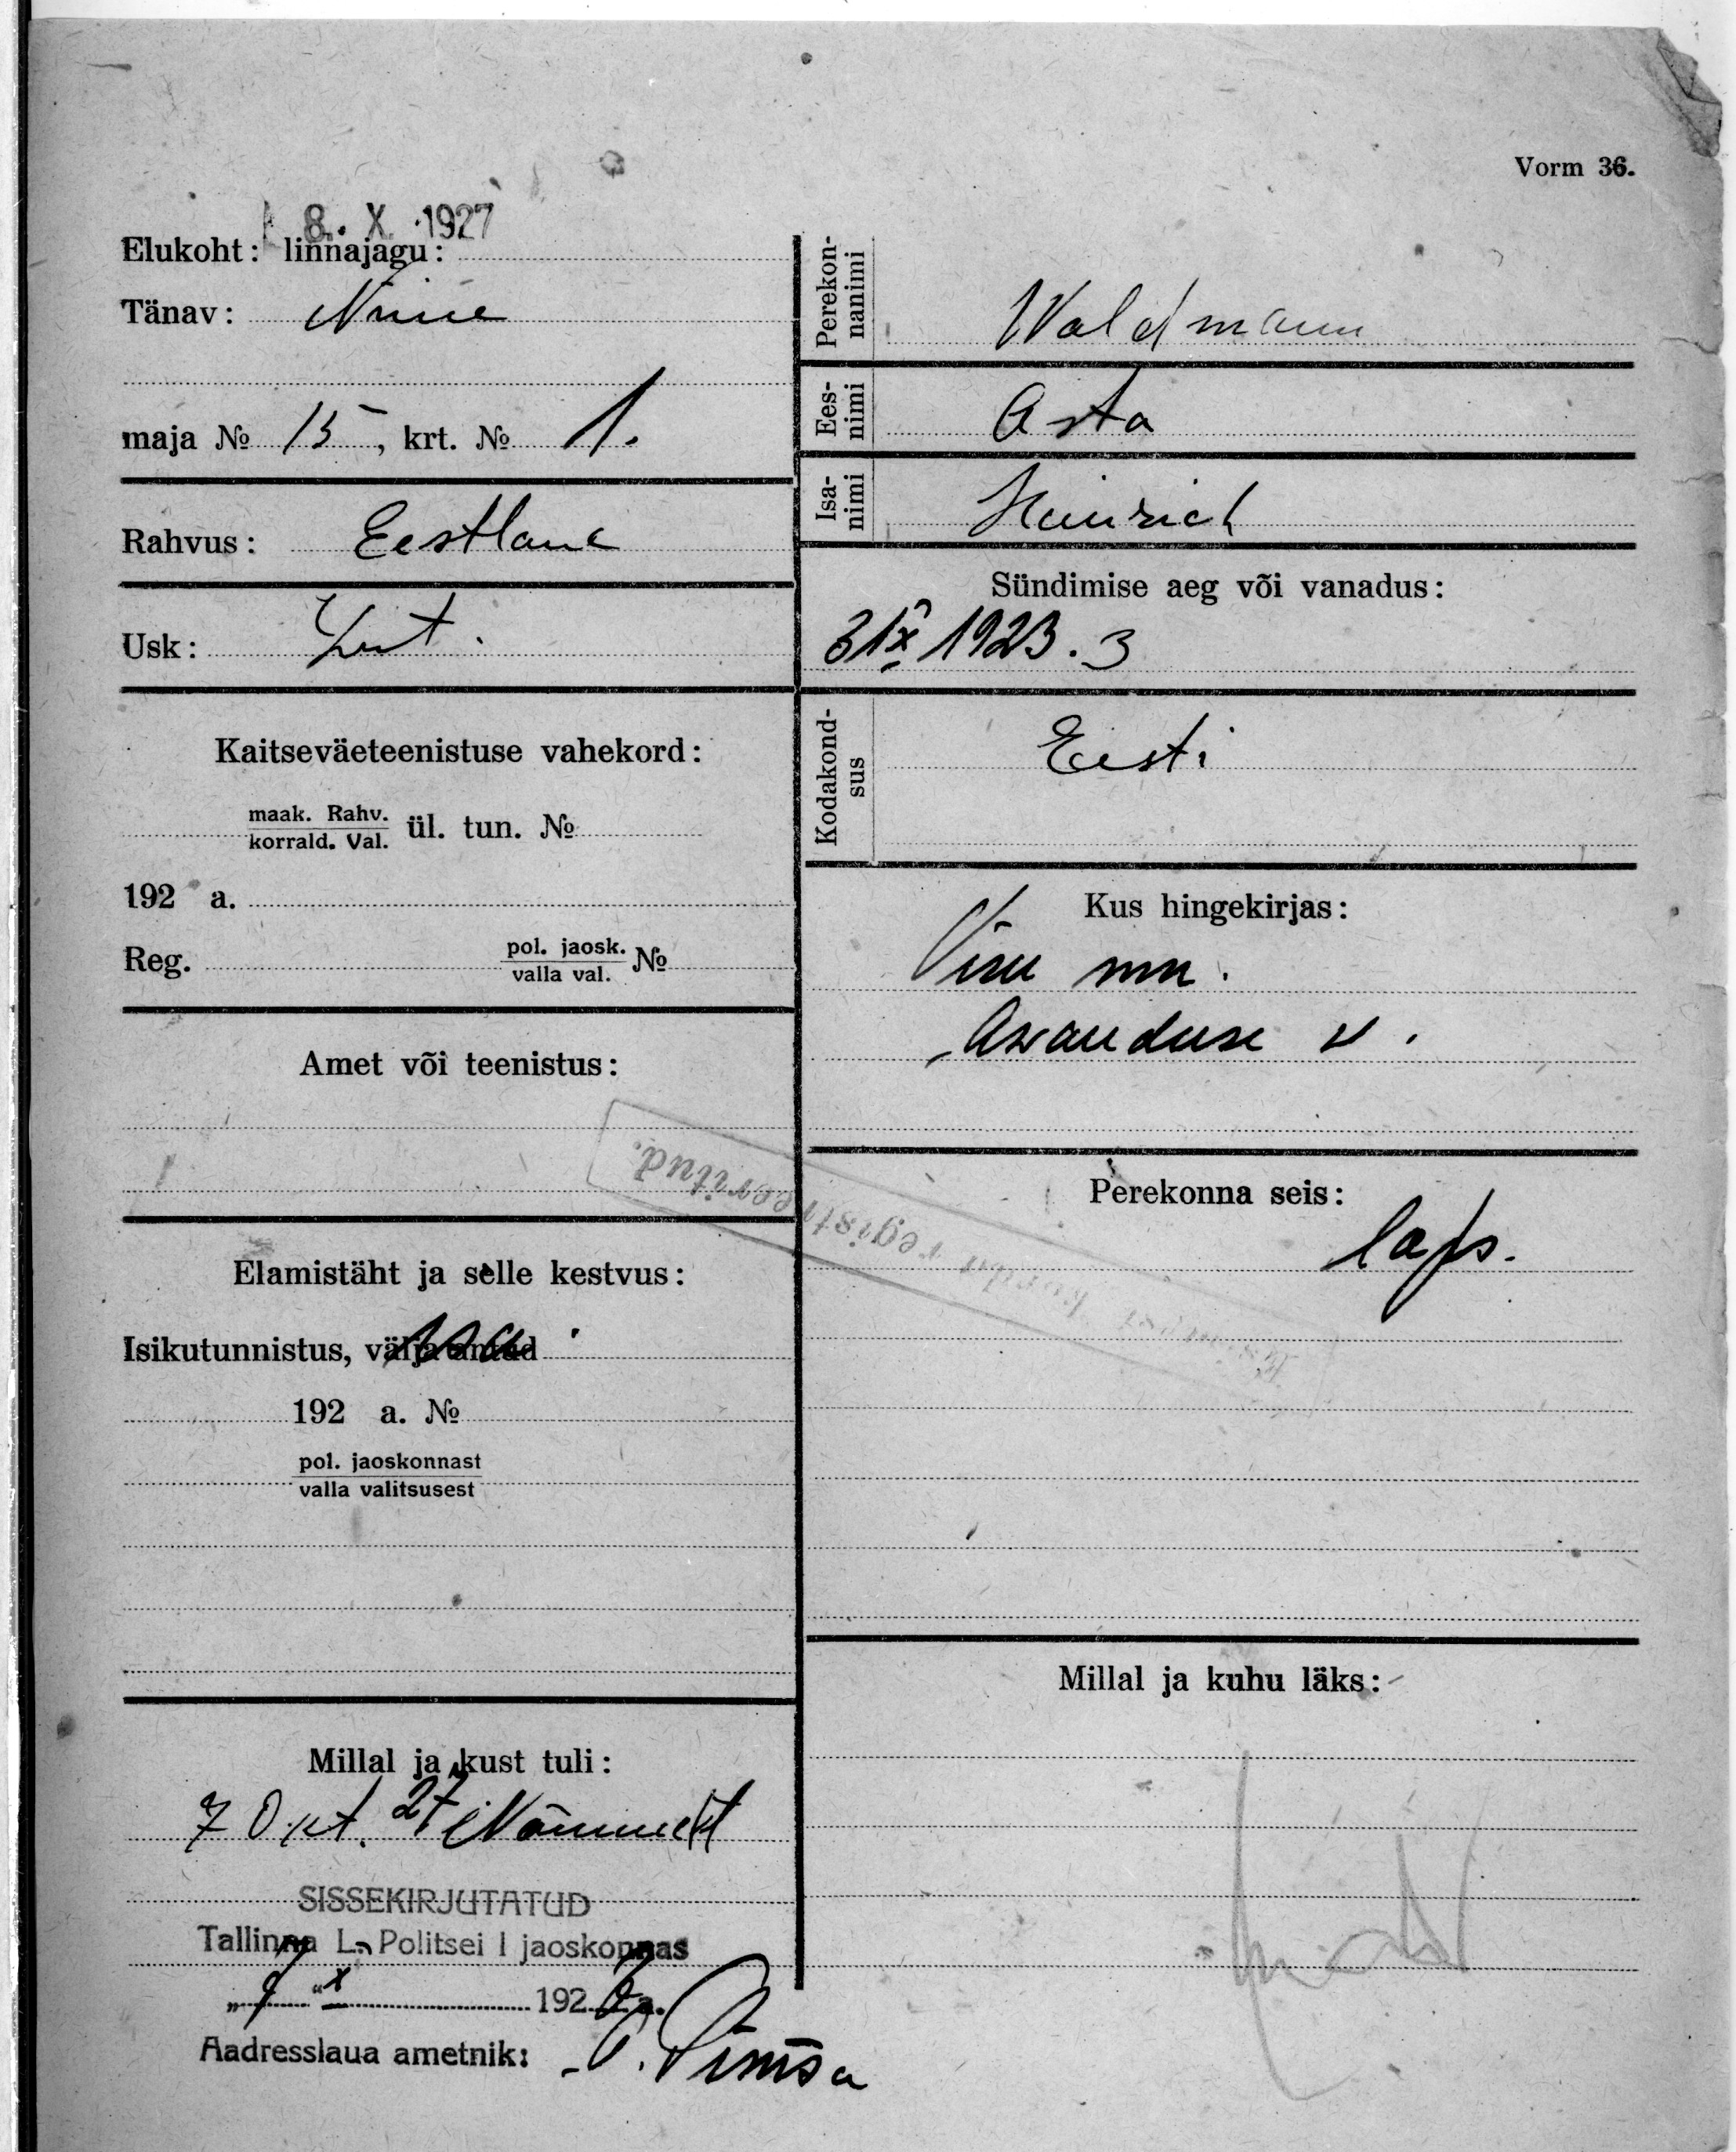 Vorm 36.
8. X. 1927
Elukoht: linnajagu:
Tänav: Niine
maja № 15, krt. № 1.
Rahvus: Eestlane
Usk: Lut.
Kaitseväeteenistuse vahekord:
maak. Rahv.
korrald. Val. ül. tun. №
192 a.
Reg. pol. jaosk.
valla val. №
Amet või teenistus:
Elamistäht ja selle kestvus:
Isikutunnistus, välja antud
192 a. №
pol. jaoskonnast
valla valitsusest
Millal ja kust tuli:
7 Okt. 27 Nõmmelt
SISSEKIRJUTATUD
Tallinna L. Politsei I jaoskonnas
"7" X 1927 a.
Aadresslaua ametnik:
Perekon-
nanimi
Waldmann
Ees-
nimi
Asta
Isa-
nimi
Heinrich
Sündimise aeg või vanadus:
31 X 1923. 3
Kodakond-
sus
Eesti
Kus hingekirjas:
Viru mn.
Awanduse v.
registreeritud.
Perekonna seis:
laps.
Millal ja kuhu läks: